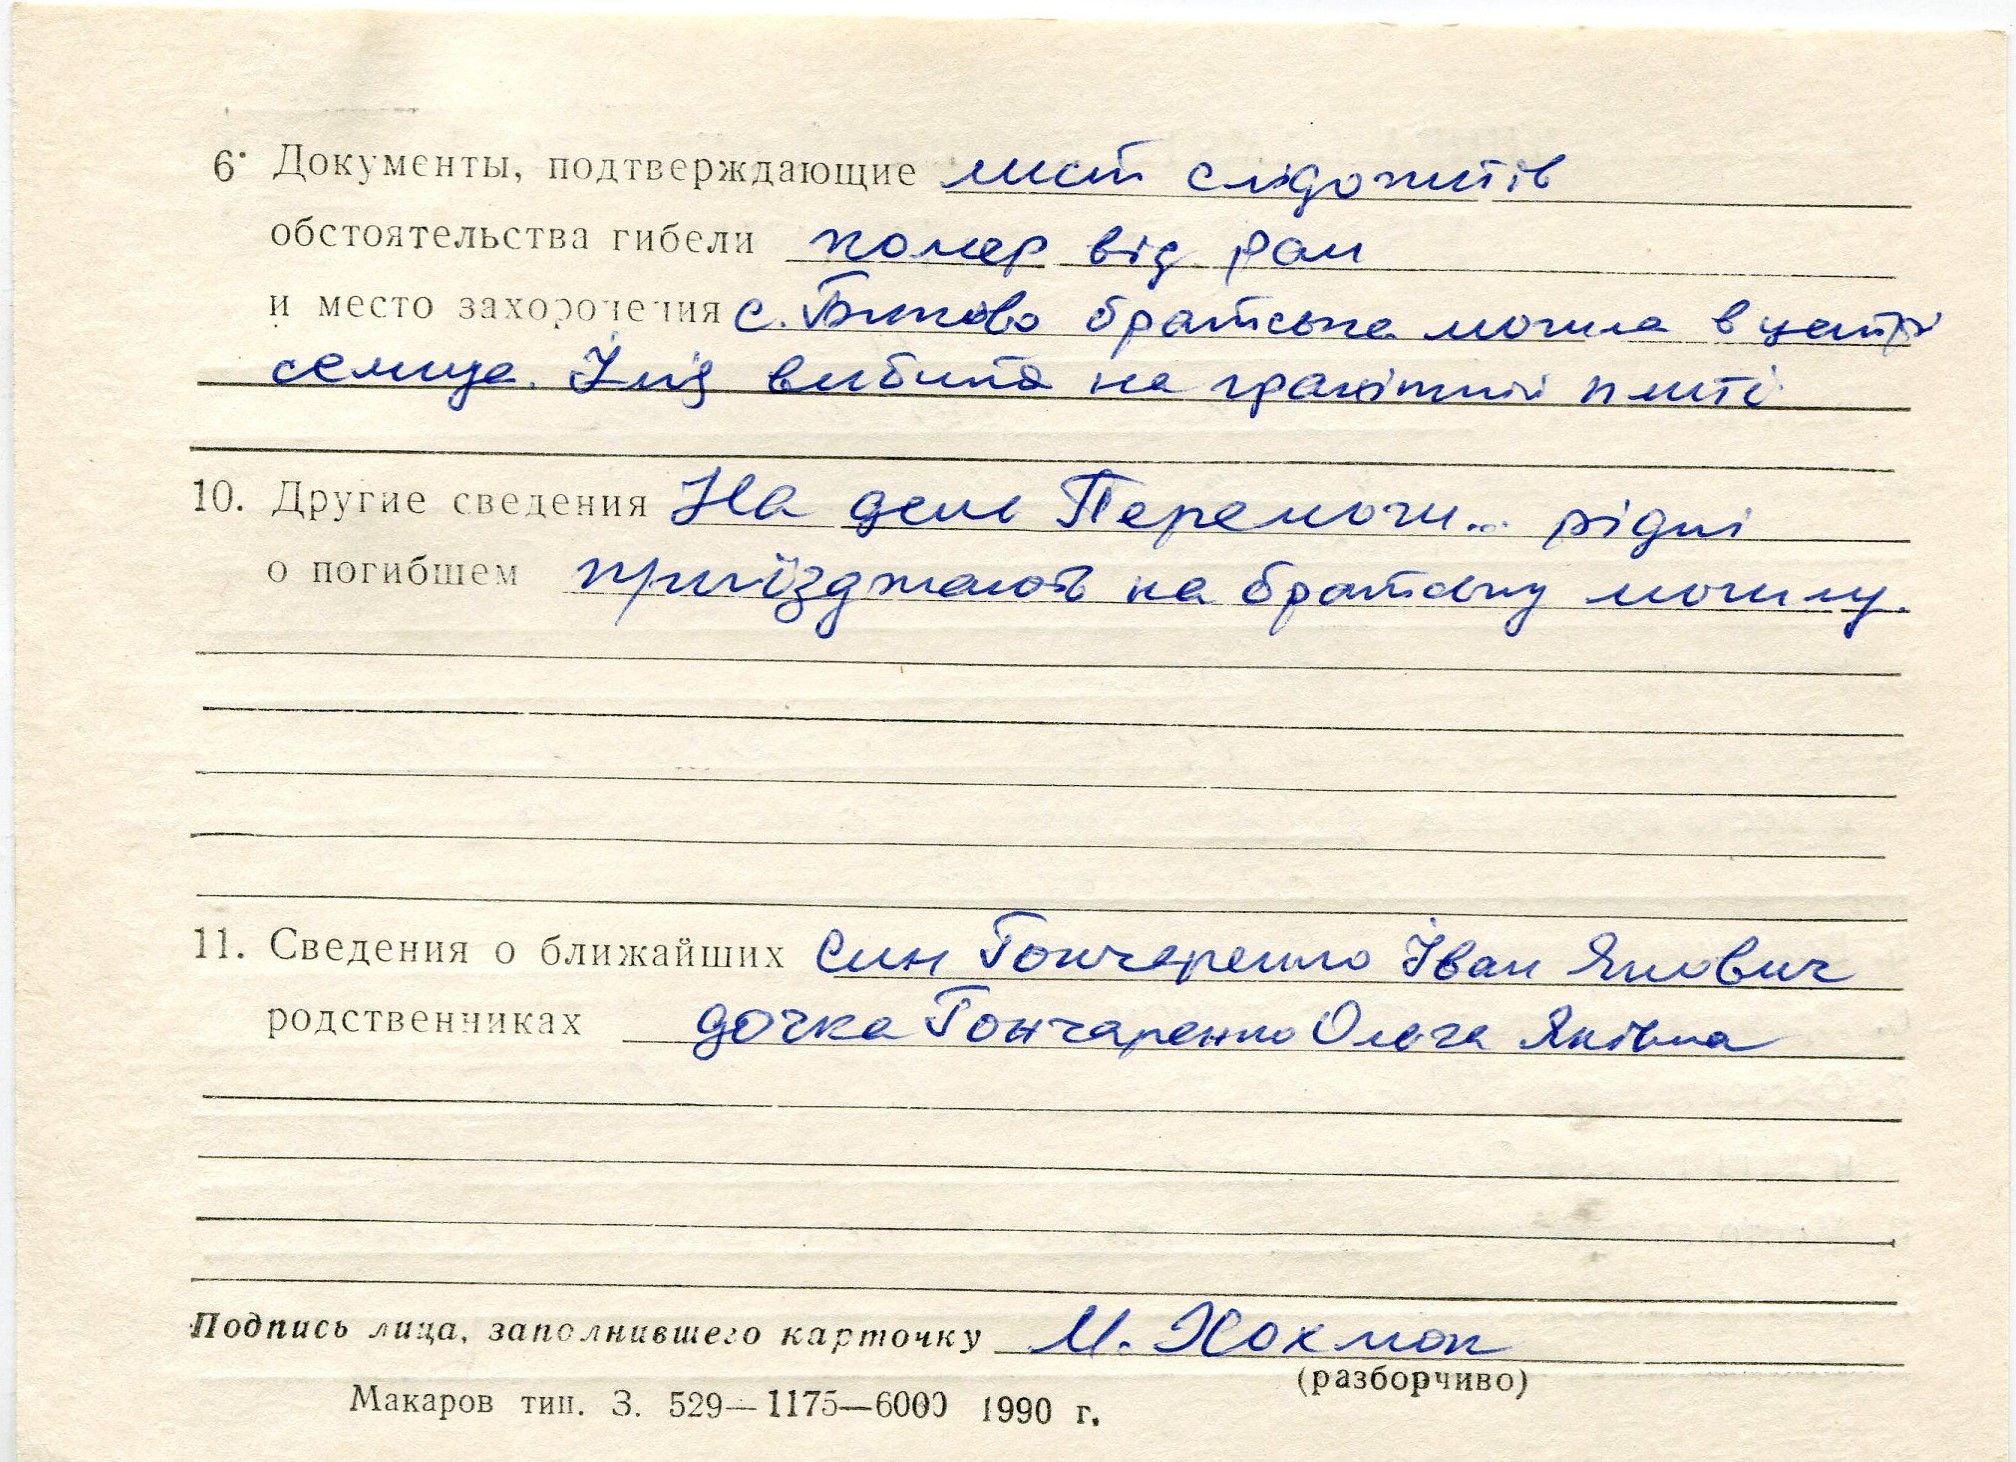 6. Документы, подтверждающие лист слідопитів
обстоятельства гибели помер від ран
и место захоронения с. Биково братська могила в центрі
селища. Індз вибито на гранітній плиті
10. Другие сведения На день Перемоги... рідні
о погибшем приїзджають на братську могилу.
11. Сведения о ближайших син Гончаренко Іван Якович
родственниках дочка Гончаренко Ольга Яківна
Подпись лица, заполнившего карточку М.
(разборчиво)
Макаров тип. З. 529—1175—6000 1990 г.